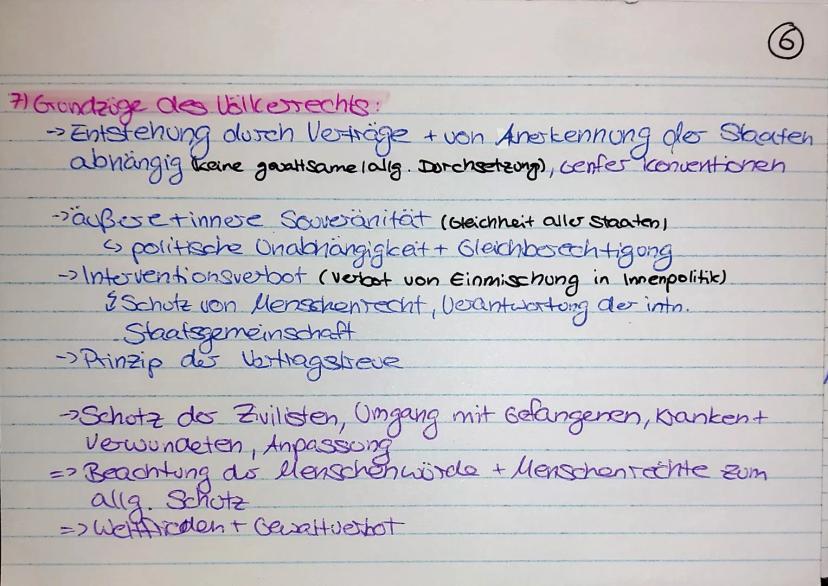 6
7) Grundzüge des Völkerrechts:
-> Entstehung durch Verträge + von Anerkennung der Staaten
abhängig (keine gewaltsame/allg. Durchsetzung), Genfer Konventionen
-> äußere + innere Souveränität (Gleichheit aller Staaten)
↳ politische Unabhängigkeit + Gleichberechtigung
-> Interventionsverbot (Verbot von Einmischung in Innenpolitik)
Schutz von Menschenrecht, Verantwortung der intn.
Staatsgemeinschaft
-> Prinzip der Vertragstreue
-> Schutz der Zivilisten, Umgang mit Gefangenen, Kranken +
Verwundeten, Anpassung
=> Beachtung der Menschenwürde + Menschenrechte zum
allg. Schutz
=> Weltfrieden + Gewaltverbot